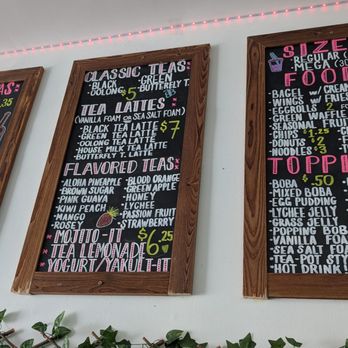 AS
.35
CLASSIC TEAS
- BLACK - GREEN
- OOLONG - BUTTERFLY T.
$5
TEA LATTES
(VANILLA FOAM OR SEA SALT FOAM)
- BLACK TEA LATTE
- GREEN TEA LATTE
- OOLONG TEA LATTE
- HOUSE MILK TEA LATTE
- BUTTERFLY T. LATTE
$7
FLAVORED TEAS
- ALOHA PINEAPPLE - BLOOD ORANGE
- BROWN SUGAR - GREEN APPLE
- PINK GUAVA - HONEY
- KIWI PEACH - LYCHEE
- MANGO - PASSION FRUIT
- ROSEY - STRAWBERRY
- MOJITO-IT
- TEA LEMONADE
- YOGURT/YAKULT-IT
$6.25
SIZE
- REGULAR (
- MEGA (30
FOO
- BAGEL W/ CREAM
- WINGS W/ FRIES
- EGGROLLS 2
- GREEN WAFFLE
- SEASONAL FRUIT
- CHIPS $1.25
- DONUTS $2
- NOODLES $3
TOPPE
$.50
- BOBA
- MIXED BOBA
- EGG PUDDING
- LYCHEE JELLY
- GRASS JELLY
- POPPING BOBA
- VANILLA FOA
- SEA SALT FOA
- TEA-POT STY
- HOT DRINK